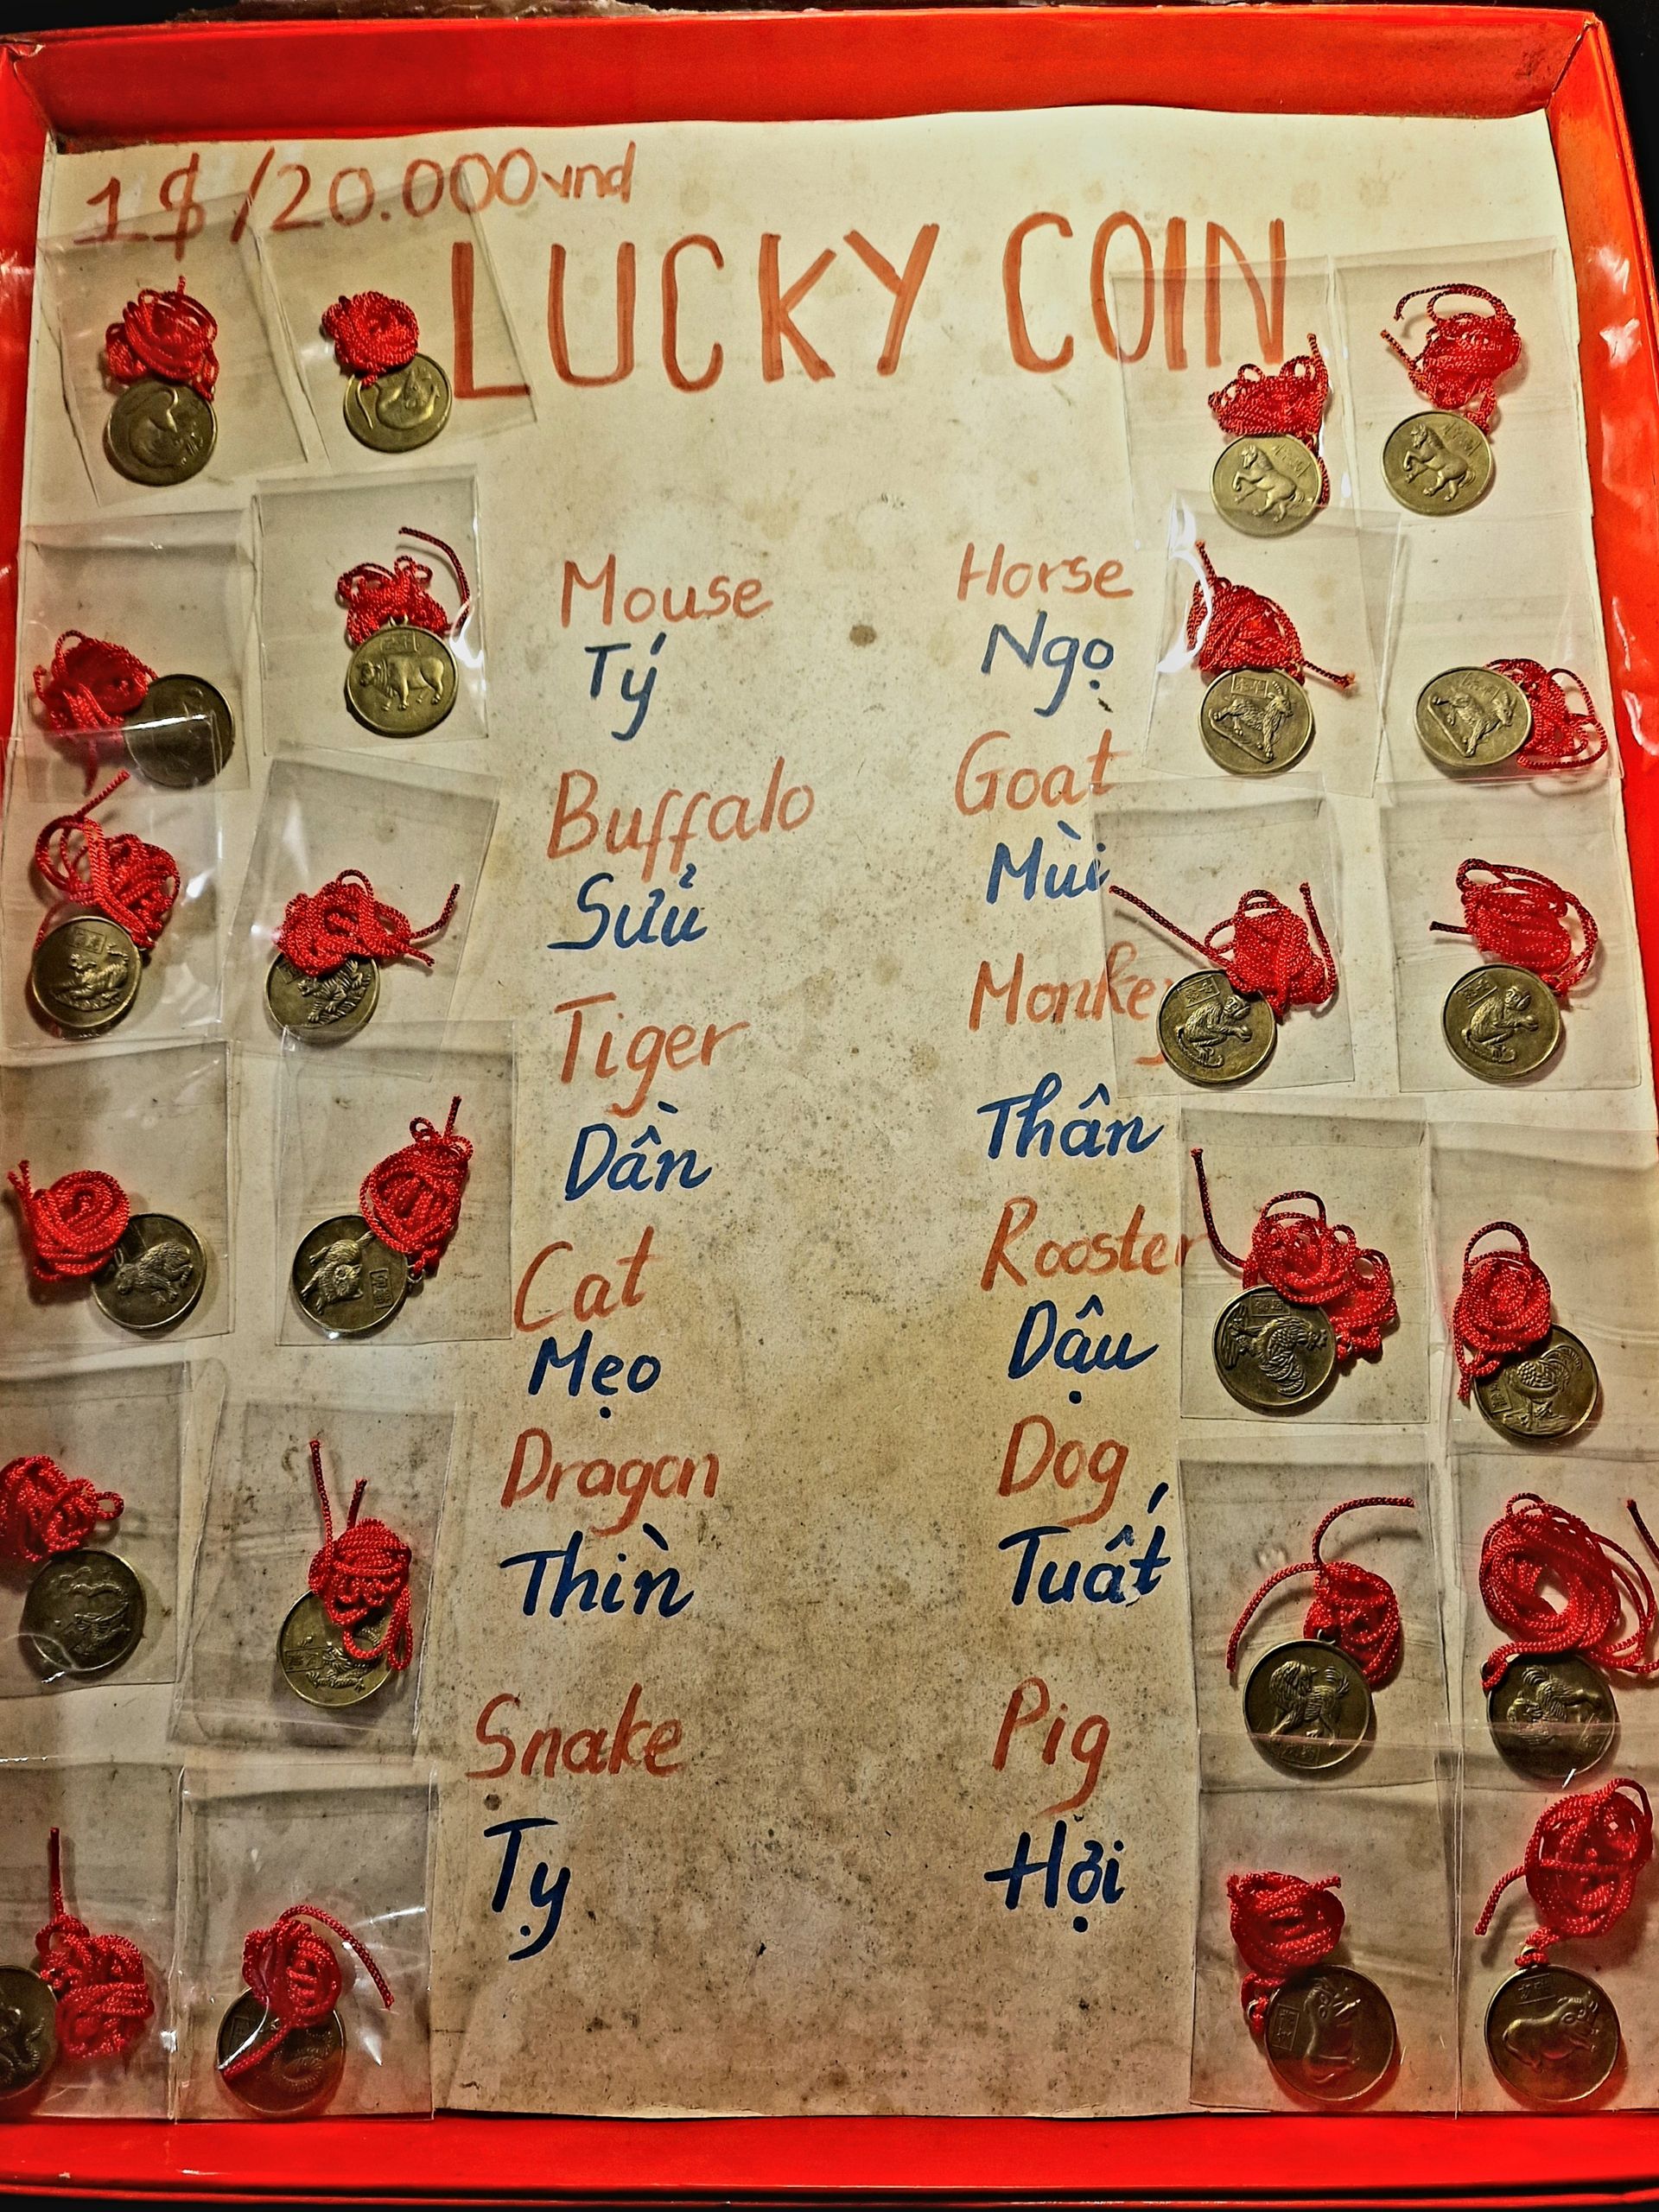 1$/20.000vnd
LUCKY COIN
Mouse
Tý
Buffalo
Sửu
Tiger
Dần
Cat
Mẹo
Dragon
Thìn
Snake
Tỵ
Horse
Ngọ
Goat
Mùi
Monkey
Thân
Rooster
Dậu
Dog
Tuất
Pig
Hợi